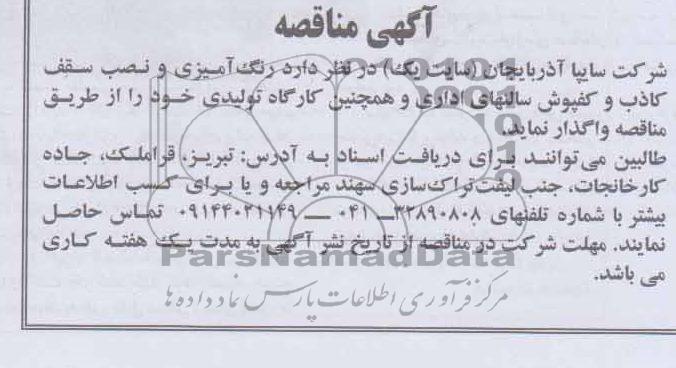 آگهی مناقصه
شرکت سایپا آذربایجان (سایت یک) در نظر دارد رنگ آمیزی و نصب سقف
کاذب و کفپوش سالنهای اداری و همچنین کارگاه تولیدی خود را از طریق
مناقصه واگذار نماید.
طالبین می توانند برای دریافت اسناد به آدرس: تبریز، قراملک، جاده
کارخانجات، جنب لیفت تراک سازی سهند مراجعه و یا برای کسب اطلاعات
بیشتر با شماره تلفنهای ۳۲۸۹۰۸۰۸ـ ۰۴۱ ـ ۰۹۱۴۴۰۲۱۹۴۹ تماس حاصل
نمایند. مهلت شرکت در مناقصه از تاریخ نشر آگهی به مدت یک هفته کاری
می باشد.
ParsNamadData
مرکز فرآوری اطلاعات پارس نماد داده ها